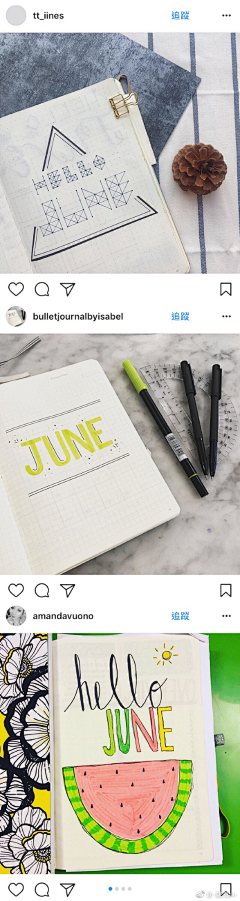 tt_iines
追蹤
HELLO
JUNE
bulletjournalbyisabel
追蹤
JUNE
amandavuono
追蹤
hello
JUNE